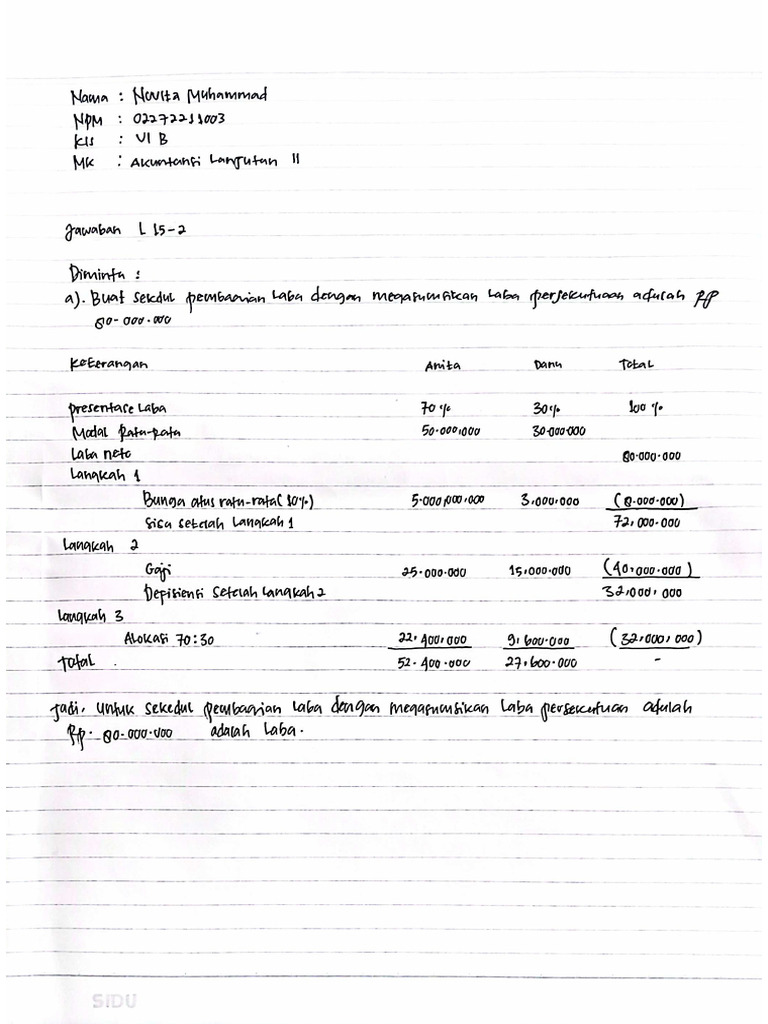 Nama : Novita Muhammad
NPM : 02272211003
Kls : VI B
MK : Akuntansi Lanjutan II
Jawaban L 15-2
Diminta :
a). Buat sekdul pembagian Laba dengan megasumsikan Laba persekutuaan adulah Rp
80.000.000
Keterangan Anita Danu Total
presentase Laba 70% 30% 100%
Modal Rata-rata 50.000.000 30.000.000
Laba neto 80.000.000
Langkah 1
Bunga atas rata-rata (10%) 5.000.000.000 3.000.000 (8.000.000)
Sisa setelah Langkah 1 72.000.000
Langkah 2
Gaji 25.000.000 15.000.000 (40.000.000)
Depisiensi Setelah Langkah 2 32.000.000
Langkah 3
Alokasi 70:30 22.400.000 9.600.000 (32.000.000)
Total 52.400.000 27.600.000 -
Jadi, untuk sekedul pembagian Laba dengan megasumsikan Laba persekutuan adulah
Rp. 80.000.000 adalah Laba.
SIDU